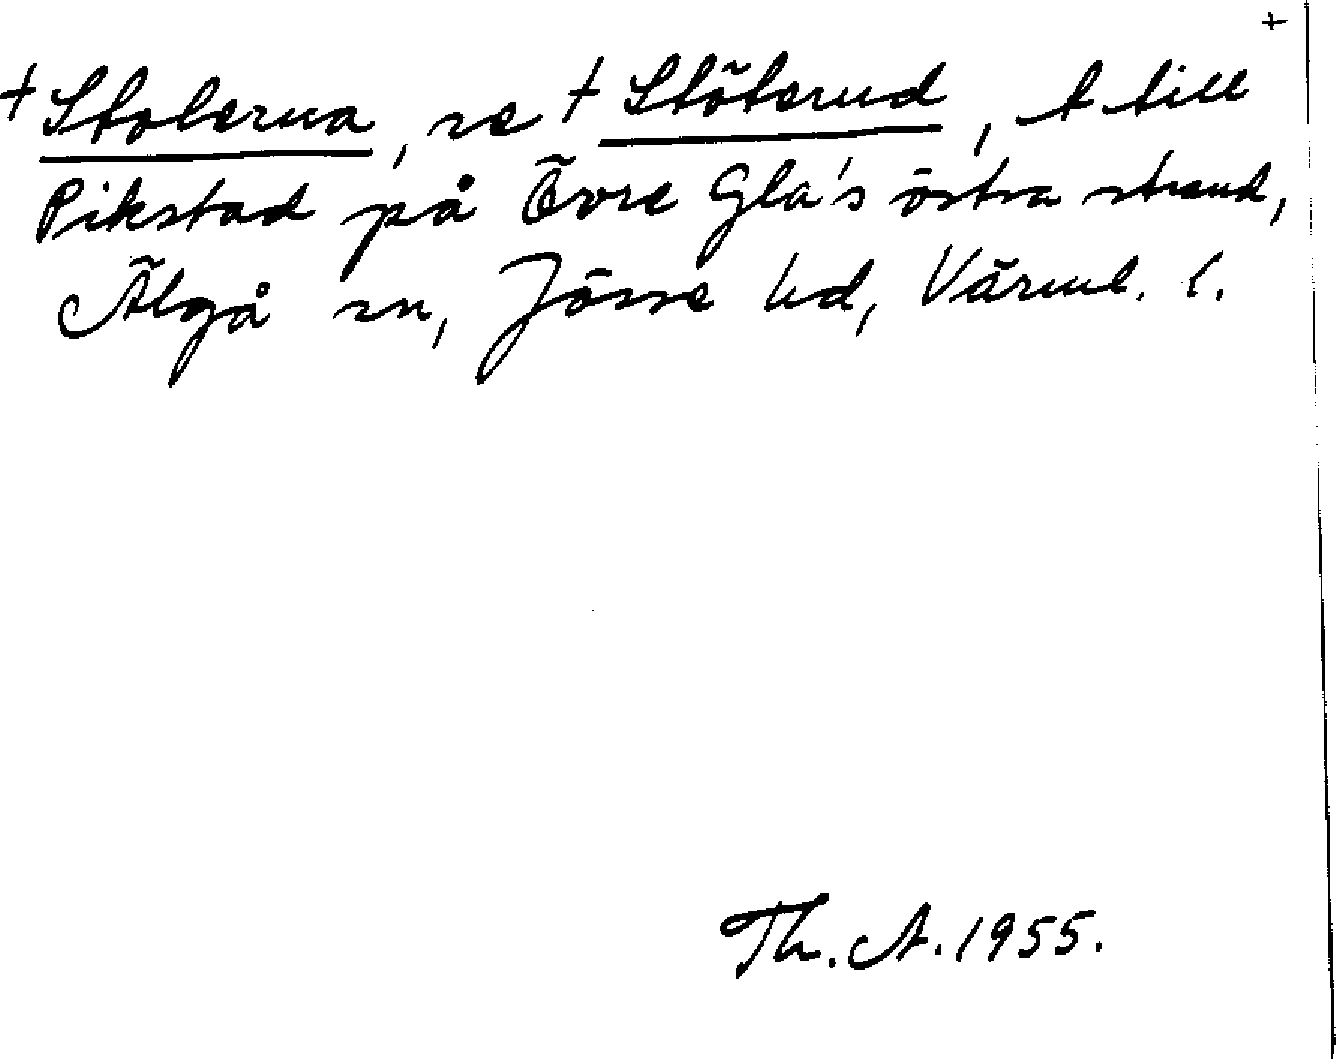 +
+ Stolerna, se + Stöterud, t till
Pikstad på Övre Gla's östra strand,
Älgå sn, Jösse hd, Värml. l.
Th. A. 1955.